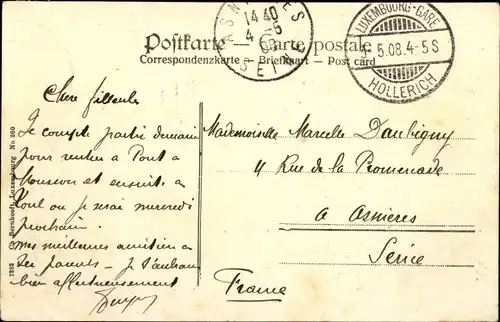 ASNIERES
14 40
4 - 5
08
SEINE
LUXEMBOURG-GARE
5.08.4-5S
HOLLERICH
Postkarte — Carte postale
Correspondenzkarte — Briefkaart — Post card
7382 Bernhoeft, Luxembourg No 260
Chère filleule
Je compte partir demain
pour rentrer a Pont à
Mousson et ensuite a
Toul ou je serai mercredi
prochain.
mes meilleures amitiés a
tes parents - je t'embrasse
bien affectueusement
Mademoiselle Marcelle Daubigny
4 Rue de la Promenade
a Asnieres
Seine
France